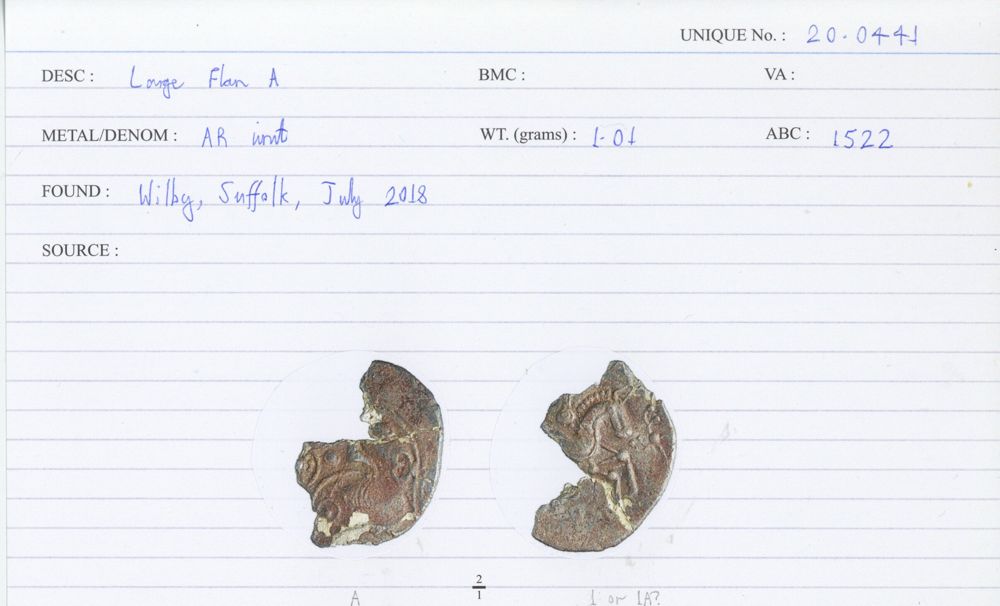 UNIQUE No. : 20-0441
DESC : Large Flan A BMC : VA :
METAL/DENOM : AR unit WT. (grams) : 1.01 ABC : 1522
FOUND : Wilby, Suffolk, July 2018
SOURCE :
2
1
A 1 or 1A?